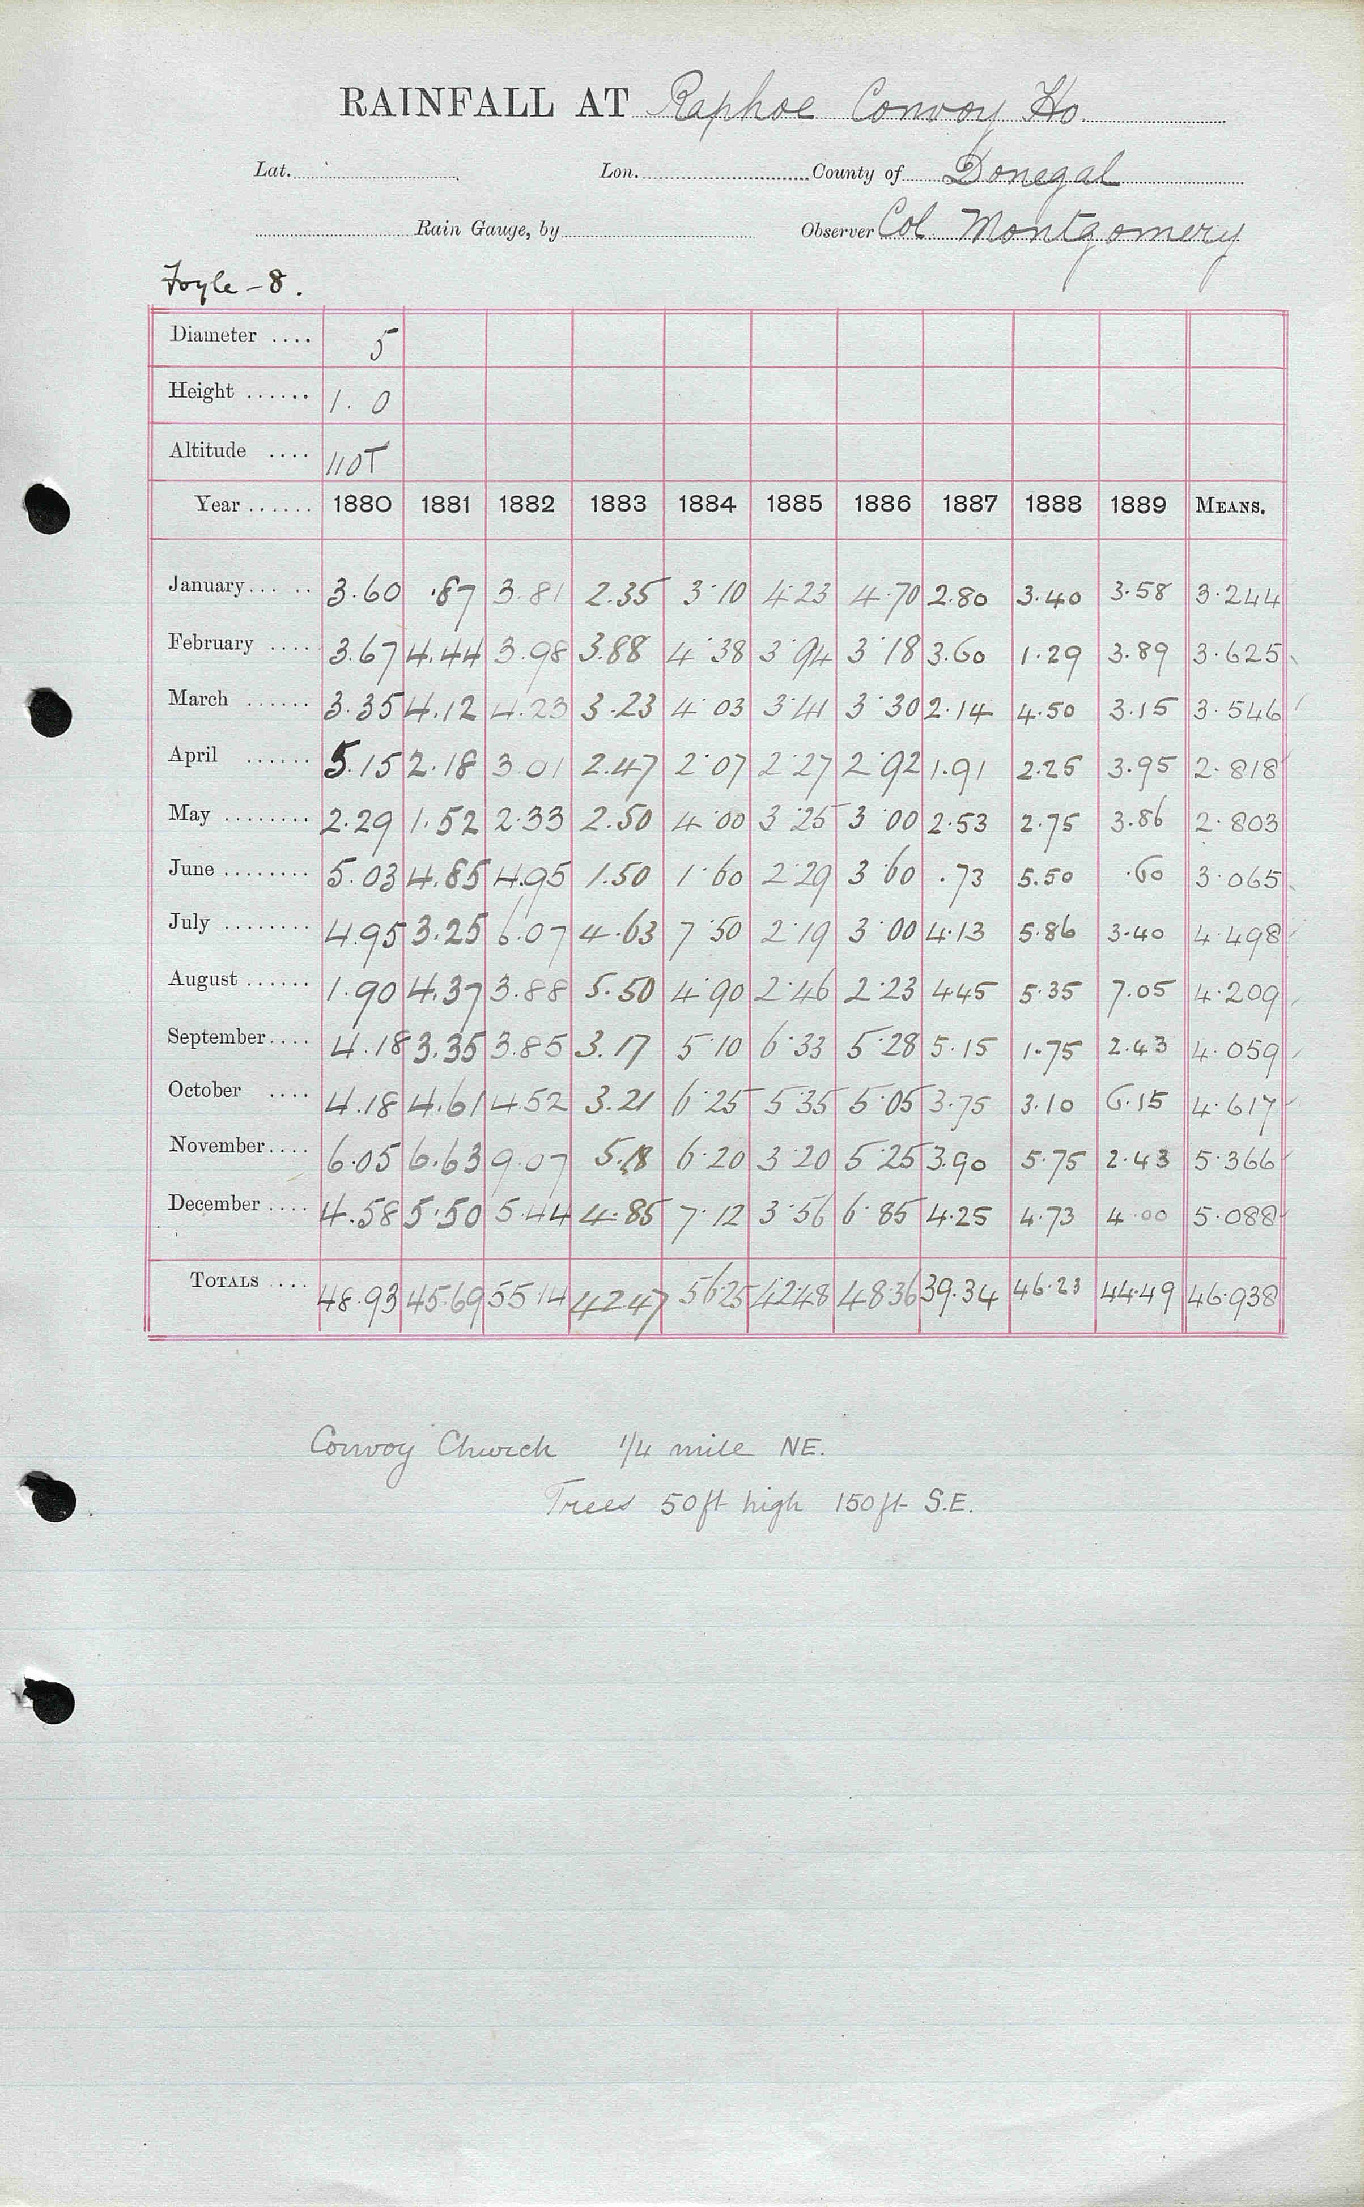 RAINFALL AT Raphoe Convoy Ho.
Lat. Lon. County of Donegal
Rain Gauge, by Observer Col. Montgomery
Foyle - 8.
Diameter .... 5
Height ...... 1. 0
Altitude .... 110T
Year ...... 1880 1881 1882 1883 1884 1885 1886 1887 1888 1889 MEANS.
January... .. 3.60 .87 3.81 2.35 3.10 4.23 4.70 2.80 3.40 3.58 3.244
February .... 3.67 4.44 3.98 3.88 4.38 3.94 3.18 3.60 1.29 3.89 3.625
March ...... 3.35 4.12 4.23 3.23 4.03 3.41 3.30 2.14 4.50 3.15 3.546
April ...... 5.15 2.18 3.01 2.47 2.07 2.27 2.92 1.91 2.25 3.95 2.818
May ........ 2.29 1.52 2.33 2.50 4.00 3.25 3.00 2.53 2.75 3.86 2.803
June ........ 5.03 4.85 4.95 1.50 1.60 2.29 3.60 .73 5.50 .60 3.065
July ........ 4.95 3.25 6.07 4.63 7.50 2.19 3.00 4.13 5.86 3.40 4.498
August ...... 1.90 4.37 3.88 5.50 4.90 2.46 2.23 4.45 5.35 7.05 4.209
September.... 4.18 3.35 3.85 3.17 5.10 6.33 5.28 5.15 1.75 2.43 4.059
October .... 4.18 4.61 4.52 3.21 6.25 5.35 5.05 3.75 3.10 6.15 4.617
November.... 6.05 6.63 9.07 5.18 6.20 3.20 5.25 3.90 5.75 2.43 5.366
December .... 4.58 5.50 5.44 4.85 7.12 3.56 6.85 4.25 4.73 4.00 5.088
TOTALS .... 48.93 45.69 55.14 42.47 56.25 42.48 48.36 39.34 46.23 44.49 46.938
Convoy Church 1/4 mile NE.
Trees 50ft high 150ft S.E.